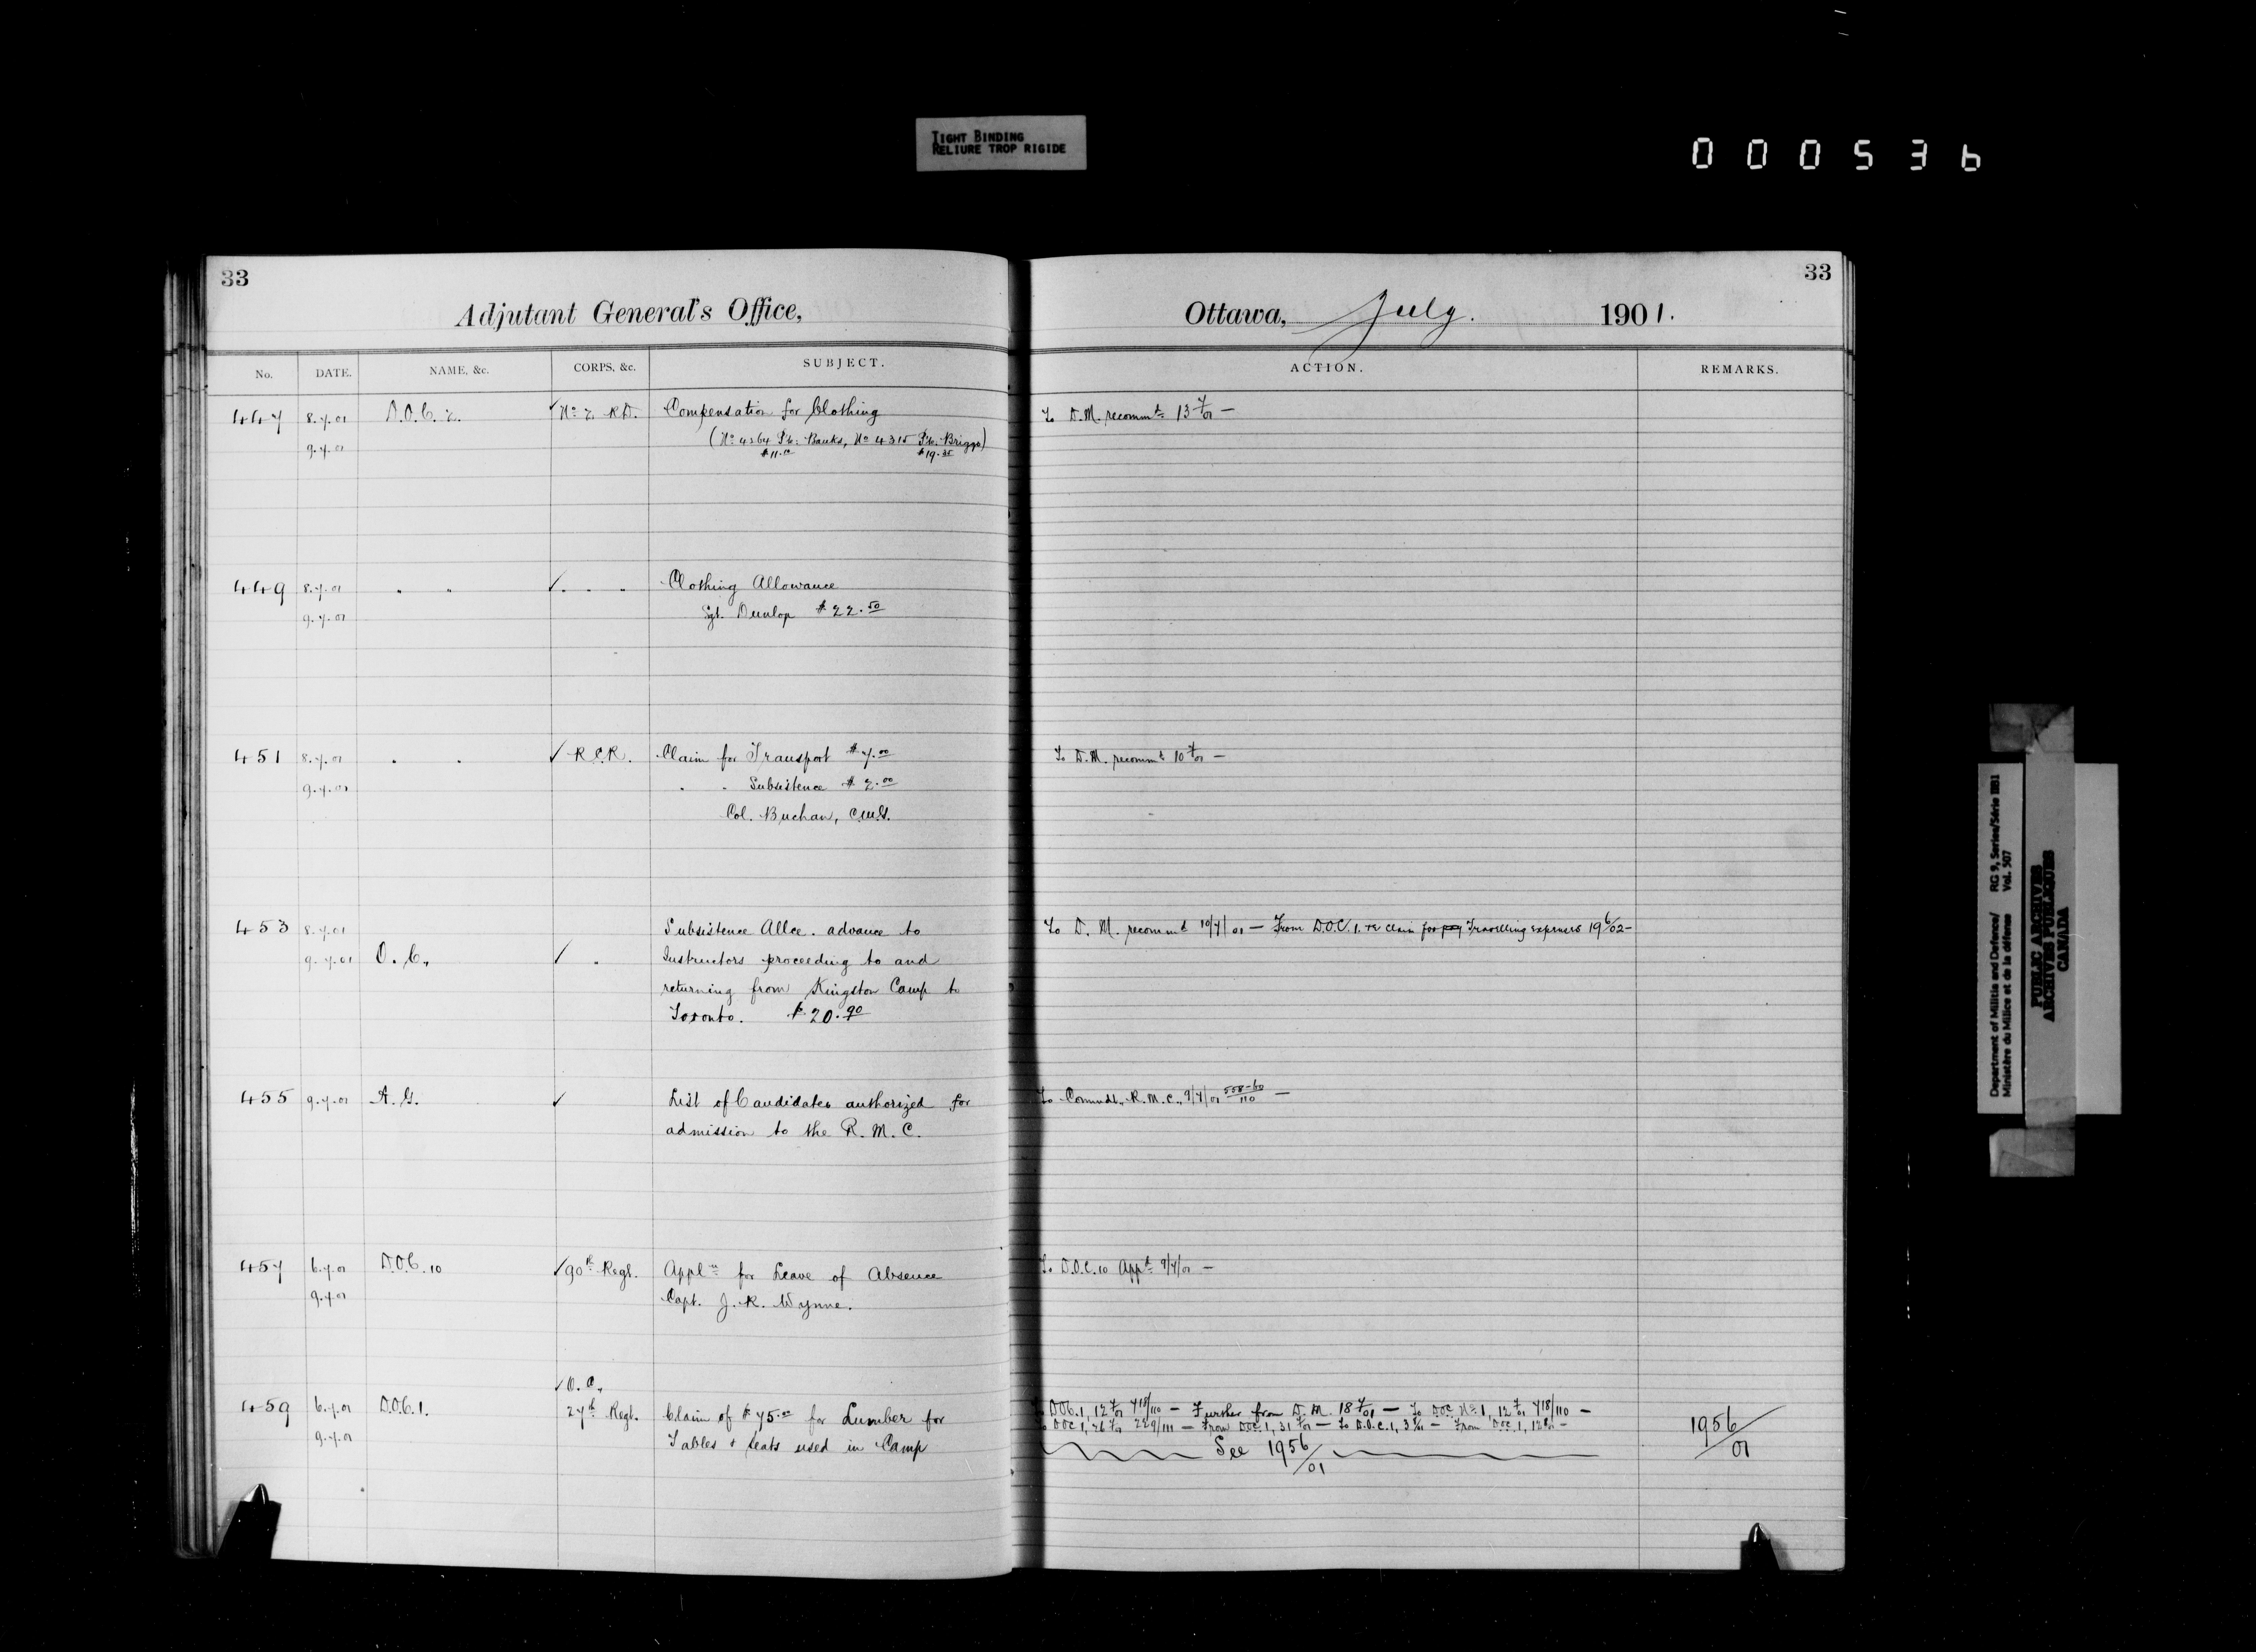 TIGHT BINDING
RELIURE TROP RIGIDE
000536
33
Adjutant General's Office,
No. DATE. NAME, &c. CORPS, &c. SUBJECT.
447 8.7.01 D.O.C. 2. ✓ No 2 R.D. Compensation for Clothing
9.7.01 (No 4264 Pte. Banks, No 4315 Pte. Briggs)
$11.10 $19.35
449 8.7.01 " " ✓ " " " Clothing Allowance
9.7.01 Sgt. Dunlop $22.50
451 8.7.01 " " ✓ R.C.R. Claim for Transport $7.00
9.7.01 " " Subsistence $2.00
Col. Buchan, C.M.G.
453 8.7.01 Subsistence Allce. advance to
9.7.01 O.C., ✓ " Instructors proceeding to and
returning from Kingston Camp to
Toronto. $20.90
455 9.7.01 A.G. ✓ List of Candidates authorized for
admission to the R.M.C.
457 6.7.01 D.O.C. 10 ✓ 90th Regt. Appln for Leave of Absence
9.7.01 Capt. J.R. Wynne.
✓ O.C.,
459 6.7.01 D.O.C. 1. 27th Regt. Claim of $75.00 for Lumber for
9.7.01 Tables + Seats used in Camp
33
Ottawa, July. 1901.
ACTION. REMARKS.
To D.M. recommd 13/7/01 —
To D.M. recommd 10/7/01 —
To D.M. recommd 10/7/01 — From D.O.C. 1. re claim for Travelling expenses 19/6/02 —
To Commdt., R.M.C., 9/7/01 558-60/110 —
To D.O.C. 10 Appd 9/7/01 —
To DOC. 1, 12/7/01 718/110 — Further from D.M. 18/7/01 — To DOC No 1, 12/7/01 718/110 —
To DOC 1, 26/7/01 229/111 — From DOC. 1, 31/7/01 — To D.O.C. 1, — From DOC. 1,
See 1956/01
1956/01
Department of Militia and Defence/ RG 9, Series/Série IIB1
Ministère du Milice et de la défense Vol. 507
PUBLIC ARCHIVES
ARCHIVES PUBLIQUES
CANADA